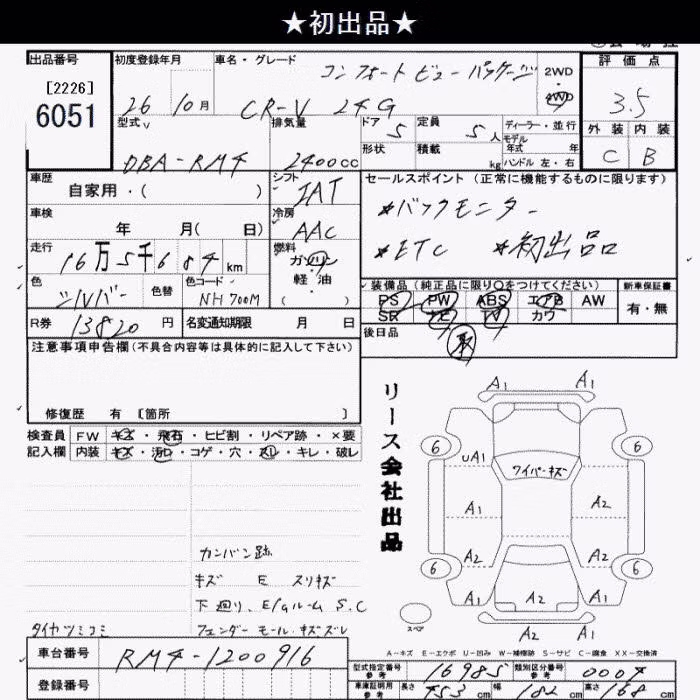 ★初出品★
出品番号
[2226]
6051
初度登録年月
26 10月
車名・グレード
コンフォートビューパッケージ
CR-V 24G
2WD
・
4WD
評価点
3.5
外装 内装
C B
型式
DBA-RM4
排気量
2400cc
ドア 5
定員 5人
形状
積載 kg
ディーラー・並行
モデル年式 年
ハンドル 左・右
車歴
自家用・( )
シフト
IAT
セールスポイント(正常に機能するものに限ります)
★バックモニター
★ETC ★初出品
車検
年 月( 日)
冷房
AAC
走行
16万5千684km
燃料
ガソリン
軽・油
( )
色
シルバー
色替
色コード
NH700M
装備品(純正品に限り○をつけてください)
PS PW ABS エアB AW
SR ナビ TV カワ
新車保証書
有・無
R券
13820円
名変通知期限 月 日
後日品
取
注意事項申告欄(不具合内容等は具体的に記入して下さい)
修復歴 有 〔箇所 〕
検査員記入欄
FW キズ・飛石・ヒビ割・リペア跡・×要
内装 キズ・汚レ・コゲ・穴・スレ・キレ・破レ
リース会社出品
A1 A1
6 6
UA1
ワイパーキズ
A1 A2
A2 A2
6 6
A1 A2 A1
A2 A1
スペア
カンバン跡
キズ E スリキズ
下廻り、E/gルーム S.C
タイカツミコミ
フェンダーモール・キズズレ
A-キズ E-エクボ U-凹み W-補修跡 S-サビ C-腐食 XX-交換済
車台番号
RM4-1200916
登録番号
型式指定番号
参考
16985
類別区分番号
参考
0004
車庫証明用
参考
長さ 453cm 幅 182cm 高さ 168cm